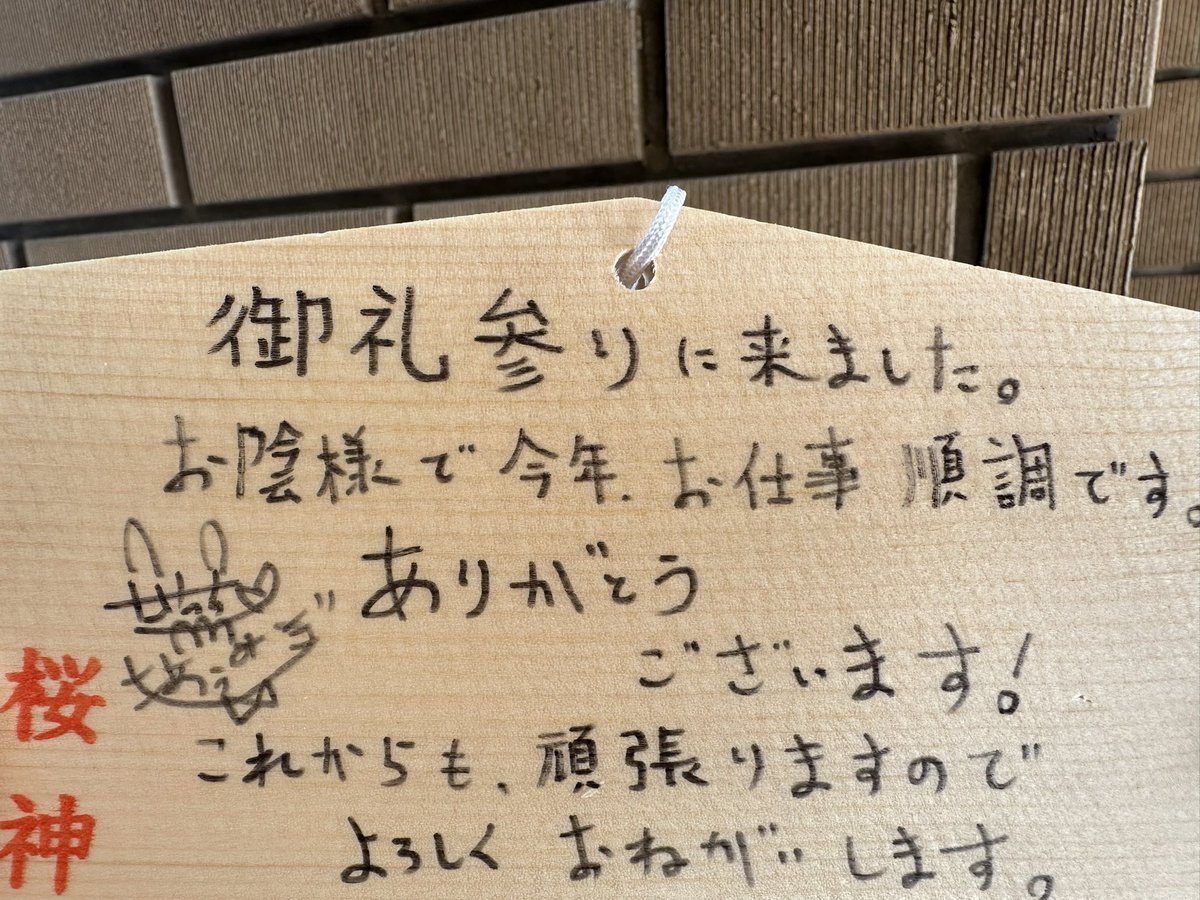 御礼参りに来ました。
お陰様で今年、お仕事順調です。
ありがとう
ございます!
これからも、頑張りますので
よろしくおねがいします。
桜神